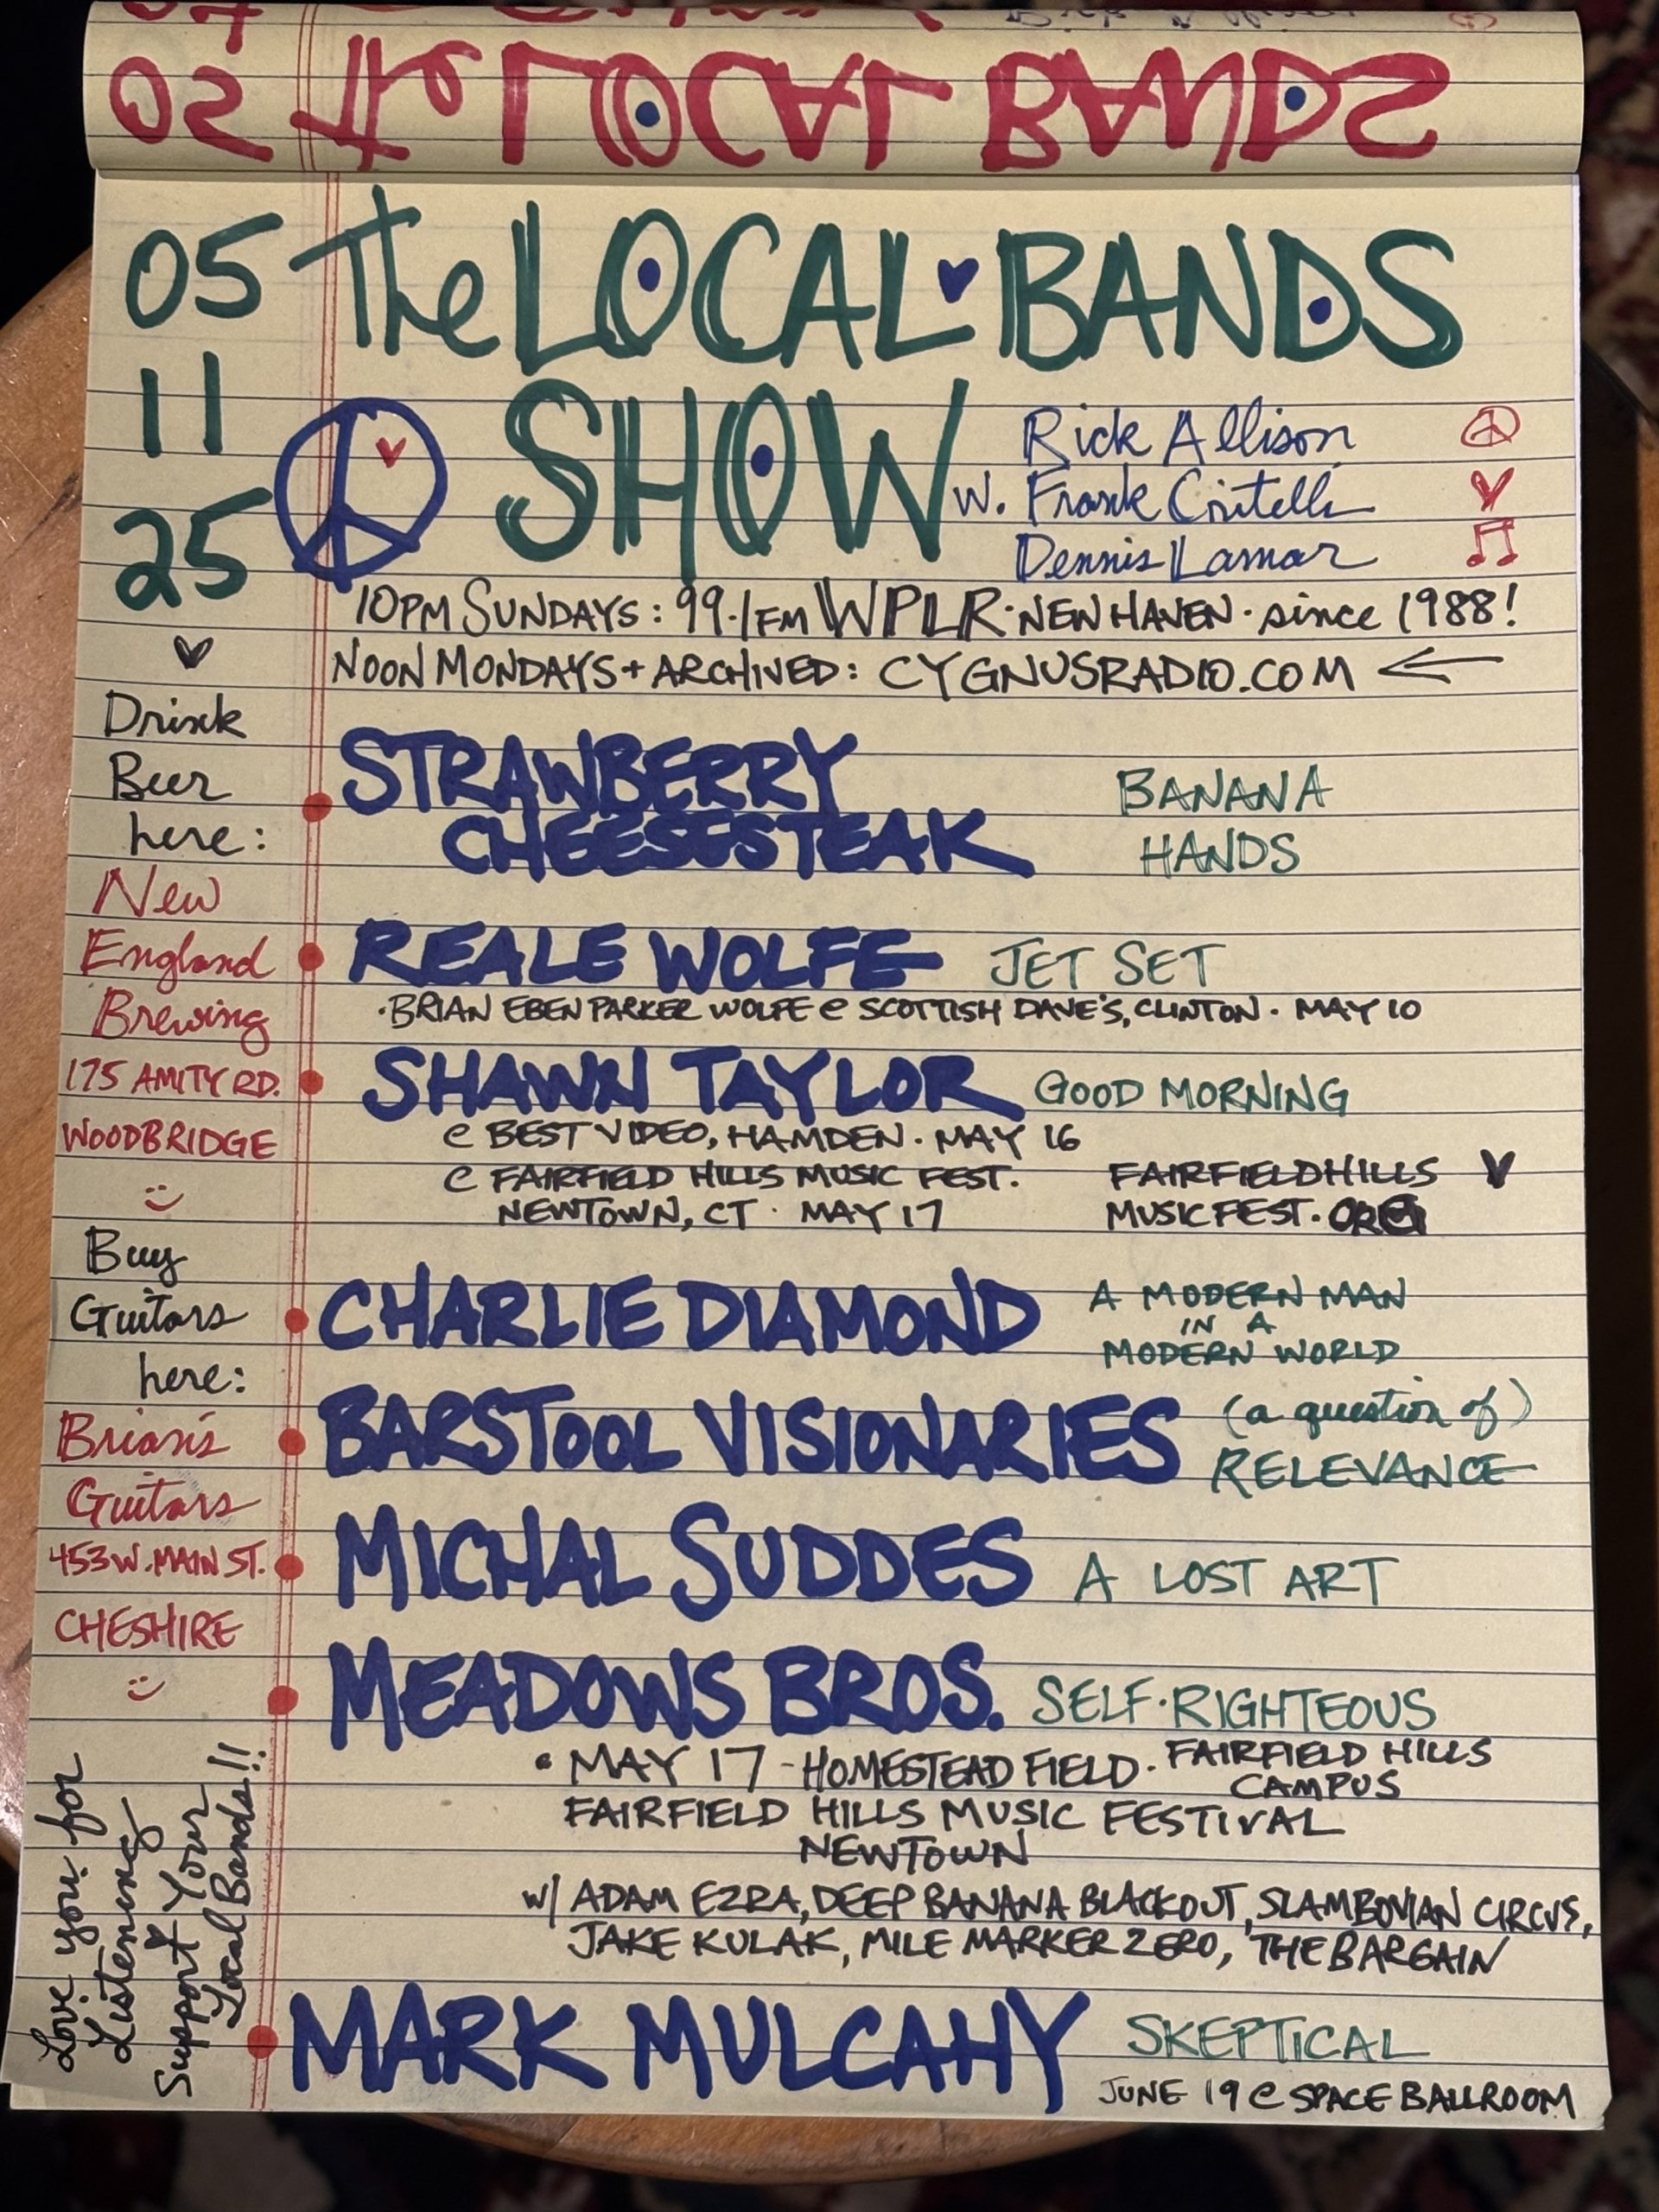 04
02 The LOCAL BANDS
05
11
25
The LOCAL BANDS
SHOW
w. Rick Allison
Frank Critelli
Dennis Lamar
10PM SUNDAYS: 99.1FM WPLR · NEW HAVEN · since 1988!
NOON MONDAYS + ARCHIVED: CYGNUSRADIO.COM
Drink
Beer
here:
New
England
Brewing
175 AMITY RD.
WOODBRIDGE
Buy
Guitars
here:
Brian's
Guitars
453 W. MAIN ST.
CHESHIRE
Love you for
Listening
Support Your
Local Bands!!
STRAWBERRY
CHEESESTEAK
BANANA
HANDS
REALE WOLFE JET SET
· BRIAN EBEN PARKER WOLFE @ SCOTTISH DAVE'S, CLINTON · MAY 10
SHAWN TAYLOR GOOD MORNING
@ BEST VIDEO, HAMDEN · MAY 16
@ FAIRFIELD HILLS MUSIC FEST.
NEWTOWN, CT · MAY 17
FAIRFIELDHILLS
MUSICFEST.ORG
CHARLIE DIAMOND
A MODERN MAN
IN A
MODERN WORLD
BARSTOOL VISIONARIES
(a question of)
RELEVANCE
MICHAL SUDDES A LOST ART
MEADOWS BROS. SELF·RIGHTEOUS
• MAY 17 - HOMESTEAD FIELD · FAIRFIELD HILLS
CAMPUS
FAIRFIELD HILLS MUSIC FESTIVAL
NEWTOWN
w/ ADAM EZRA, DEEP BANANA BLACKOUT, SLAMBOVIAN CIRCUS,
JAKE KULAK, MILE MARKER ZERO, THE BARGAIN
MARK MULCAHY SKEPTICAL
JUNE 19 @ SPACE BALLROOM